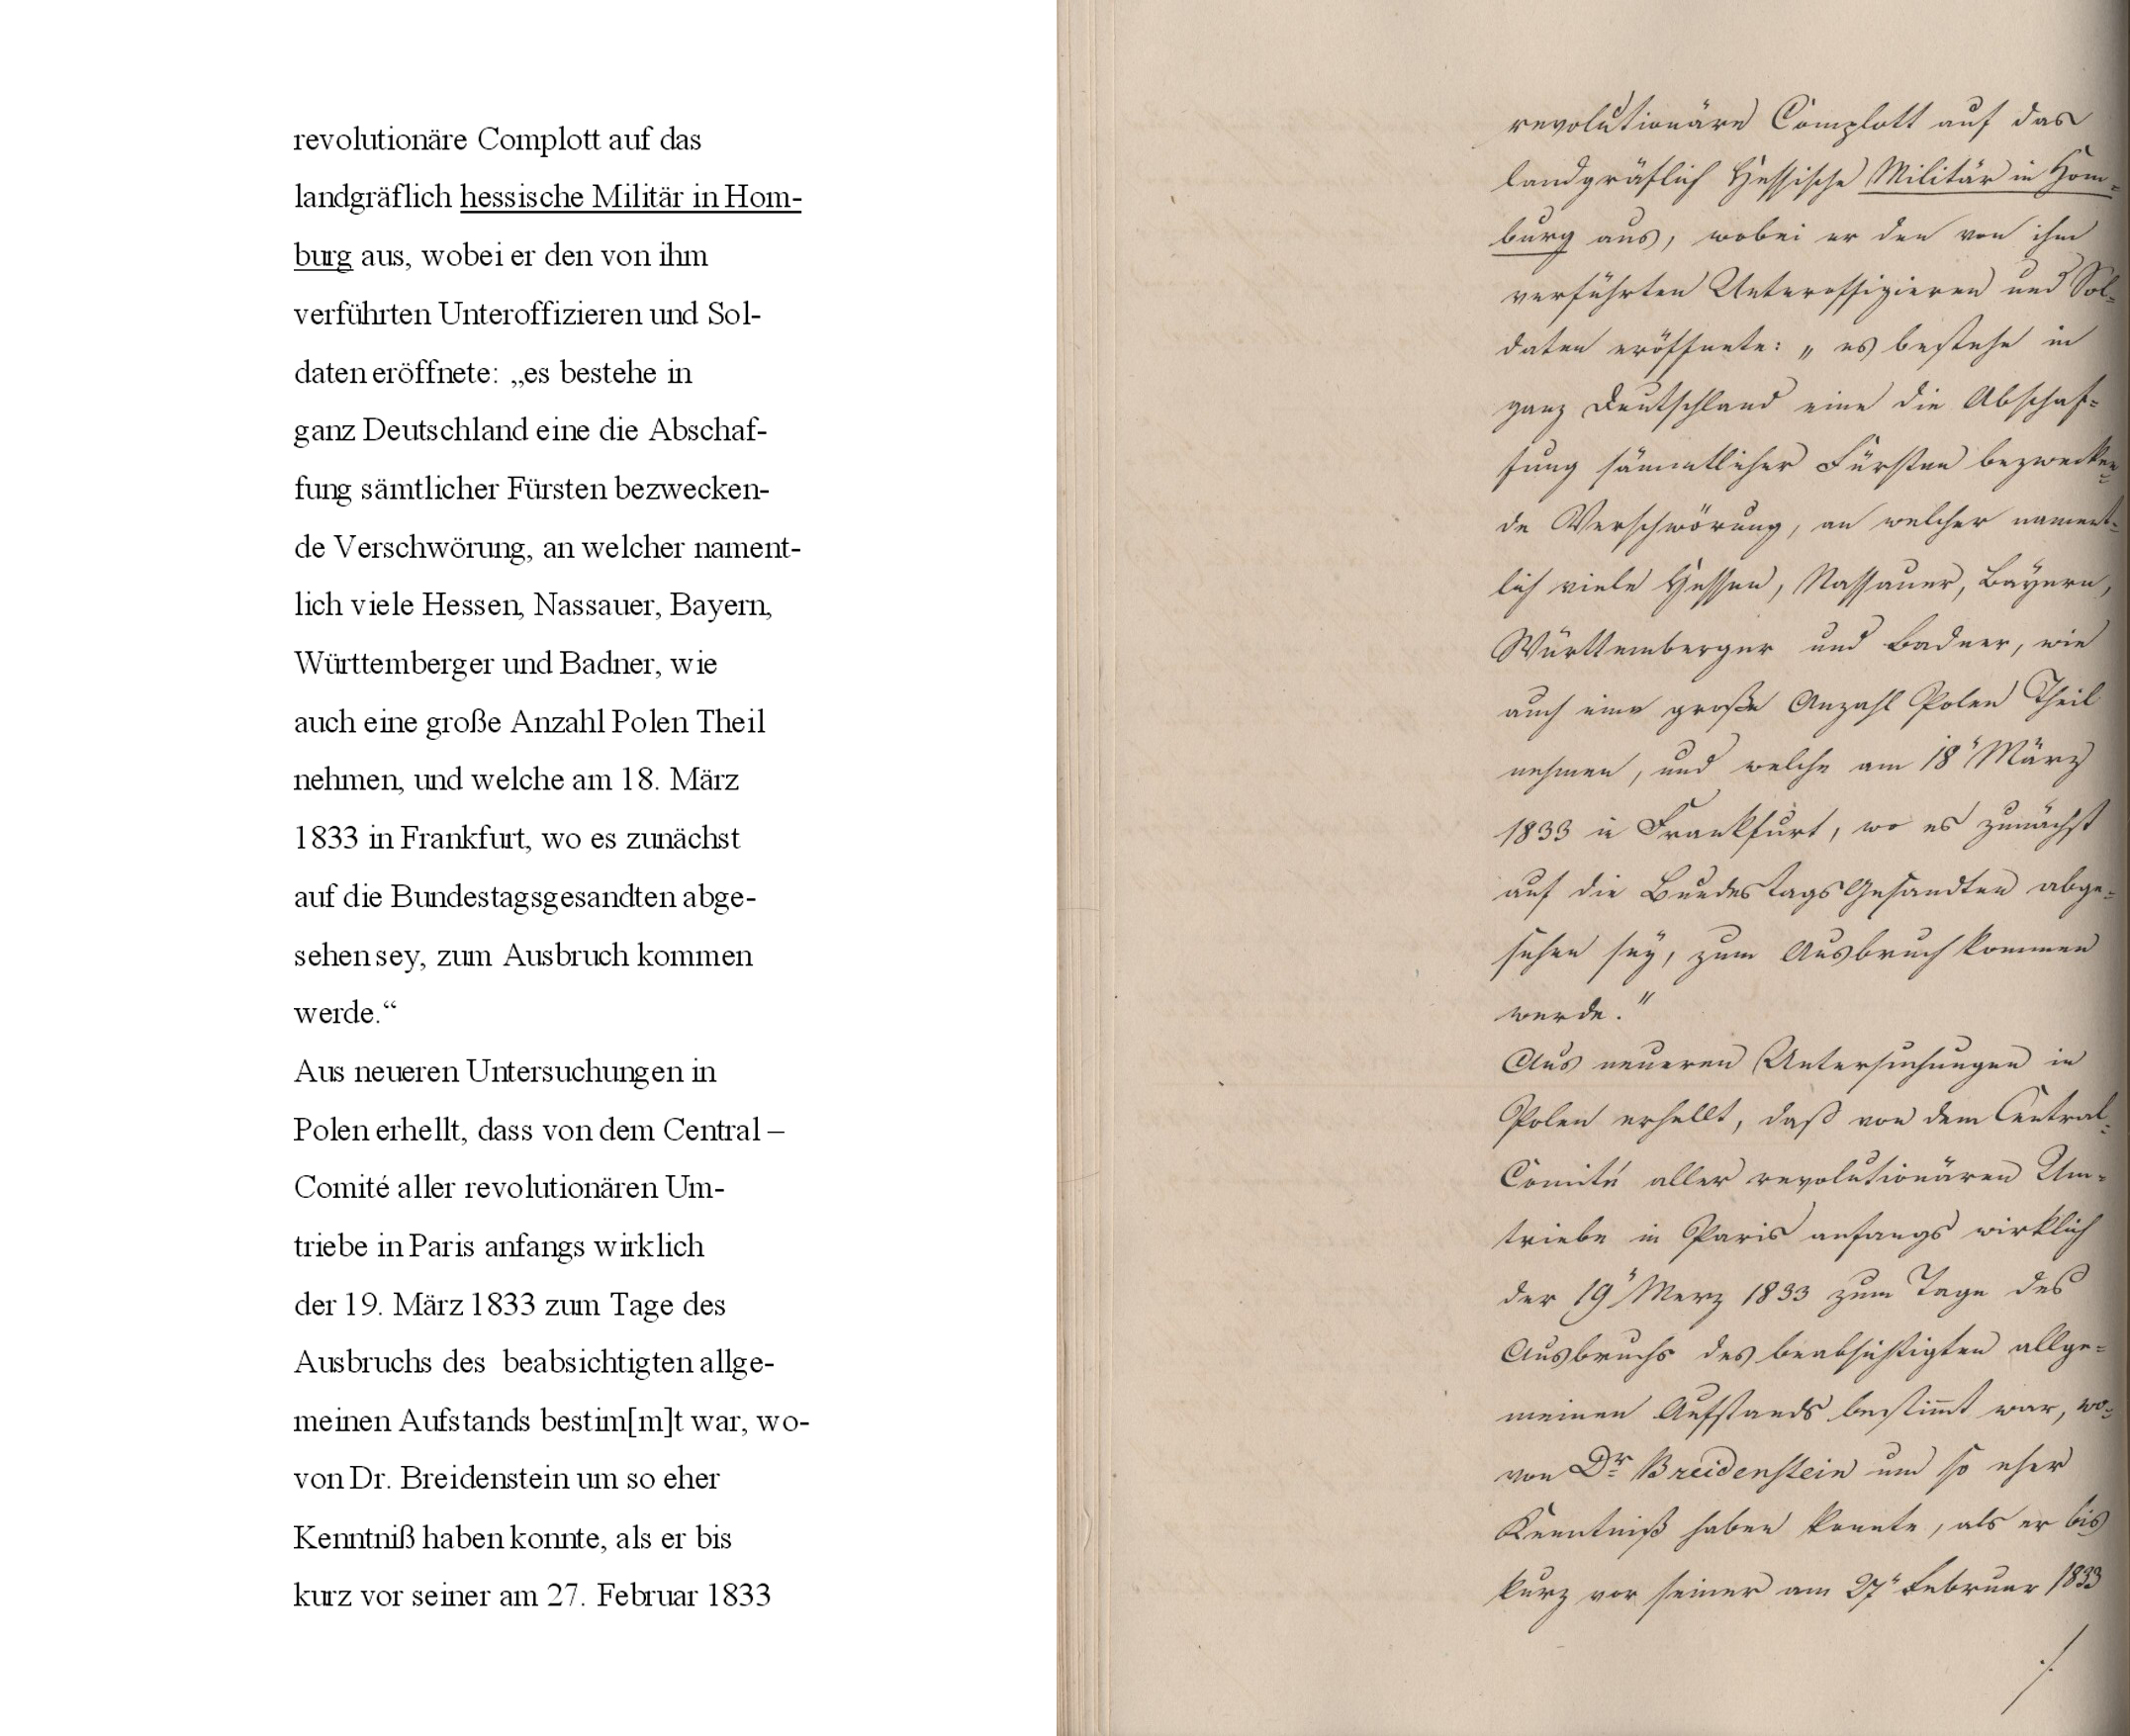 revolutionäre Complott auf das
landgräflich hessische Militär in Hom-
burg aus, wobei er den von ihm
verführten Unteroffizieren und Sol-
daten eröffnete: „es bestehe in
ganz Deutschland eine die Abschaf-
fung sämtlicher Fürsten bezwecken-
de Verschwörung, an welcher nament-
lich viele Hessen, Nassauer, Bayern,
Württemberger und Badner, wie
auch eine große Anzahl Polen Theil
nehmen, und welche am 18. März
1833 in Frankfurt, wo es zunächst
auf die Bundestagsgesandten abge-
sehen sey, zum Ausbruch kommen
werde.“
Aus neueren Untersuchungen in
Polen erhellt, dass von dem Central –
Comité aller revolutionären Um-
triebe in Paris anfangs wirklich
der 19. März 1833 zum Tage des
Ausbruchs des beabsichtigten allge-
meinen Aufstands bestim[m]t war, wo-
von Dr. Breidenstein um so eher
Kenntniß haben konnte, als er bis
kurz vor seiner am 27. Februar 1833
revolutionäre Complott auf das
landgräflich Hessische Militär in Hom-
burg aus, wobei er den von ihm
verführten Unteroffizieren und Sol-
daten eröffnete: „es bestehe in
ganz Deutschland eine die Abschaf-
fung sämmtlicher Fürsten bezwecken-
de Verschwörung, an welcher nament-
lich viele Hessen, Nassauer, Bayern,
Württemberger und Badner, wie
auch eine große Anzahl Polen Theil
nehmen, und welche am 18" März
1833 in Frankfurt, wo es zunächst
auf die BundestagsGesandten abge-
sehen sey, zum Ausbruch kommen
werde."
Aus neueren Untersuchungen in
Polen erhellt, daß von dem Central-
Comité aller revolutionären Um-
triebe in Paris anfangs wirklich
der 19" Merz 1833 zum Tage des
Ausbruchs des beabsichtigten allge-
meinen Aufstands bestim̅t war, wo-
von Dr Breidenstein um so eher
Kenntniß haben konnte, als er bis
kurz vor seiner am 27" Februar 1833
./.